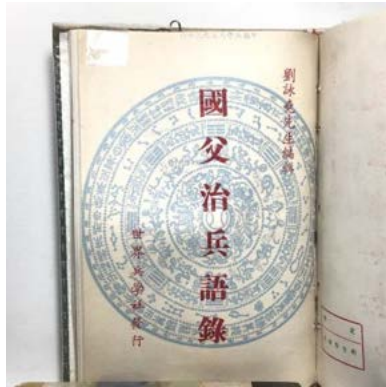 劉詠尧先生編撰
國父治兵語錄
世界兵學社發行